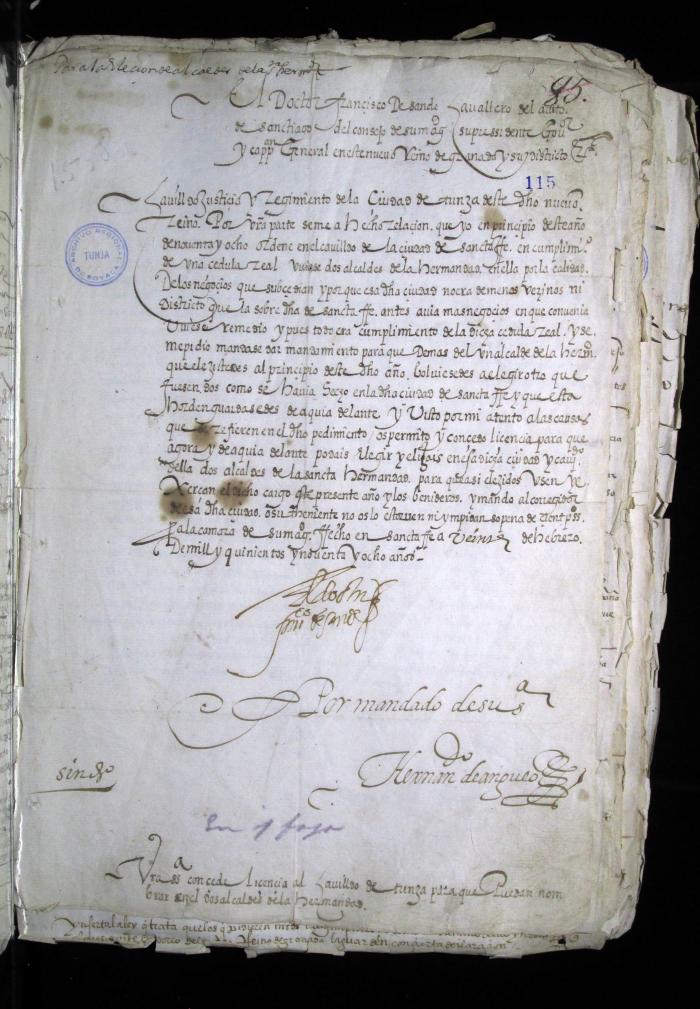 Para la Elecion de alcaldes de la s.ta herm.d
85.
El Doctor francisco De sande Cavallero del abito.
de sanctiago del consejo de su mag. su pressidente Gou.or
y capp.an General en este nuevo Reino de granada y su Districto Et.a
115
1598
ARCHIVO REGIONAL
TUNJA
DE BOYACA
Cavildo Justicia y Regimiento de la Ciudad de tunza deste dho nuevo.
Reino. Por vra parte se me a hecho Relacion. que yo en principio deste año
de noventa y ocho ordene en el cavildo de la ciudad de sancta ffe. en cumplimi.o
de una cedula Real uviese dos alcaldes de la hermandad. en ella por la calidad.
De los negocios que subcedian y porque esa dha ciudad no era de menos vezinos ni
Districto que la sobre dha de sancta ffe. antes avia mas negocios en que convenia
Uviese remedio y pues todo era cumplimiento de la dicha cedula Real. y se.
me pidio mandase dar mandamiento para que Demas del un alcalde de la herm.
que elexistedes al principio deste dho año. bolviesedes a elegir otro que
fuesen. dos como se havia hecho en la dha ciudad de sancta ffe y que esta
horden guardasedes de aqui adelante y Visto por mi atento a las causas
que se Refieren en el dho pedimiento / os permito y concedo licencia para que
agora y de aqui adelante podais elegir y elijais en esa dicha ciudad y cauil.do
della dos alcaldes de la sancta Hermandad. para que asi elejidos Usen y e
Xercan el dicho cargo este presente año y los benideros. y mando al corregidor
de esa dha ciudad. o su theniente no os lo estorven ni ympidan so pena de cient p.os
Para la camara de su mag. ffecho en sancta ffe a veinte de hebrero.
De mill y quinientos y noventa y ocho años.
El doctor
fran.co de sande
Por mandado de su s.a
sin d.os
Hernan.do de angulo
En 1 foja
Vra s.a concede licencia al Cavildo de tunza para que Puedan nom
brar en el dos alcaldes de la hermandad.